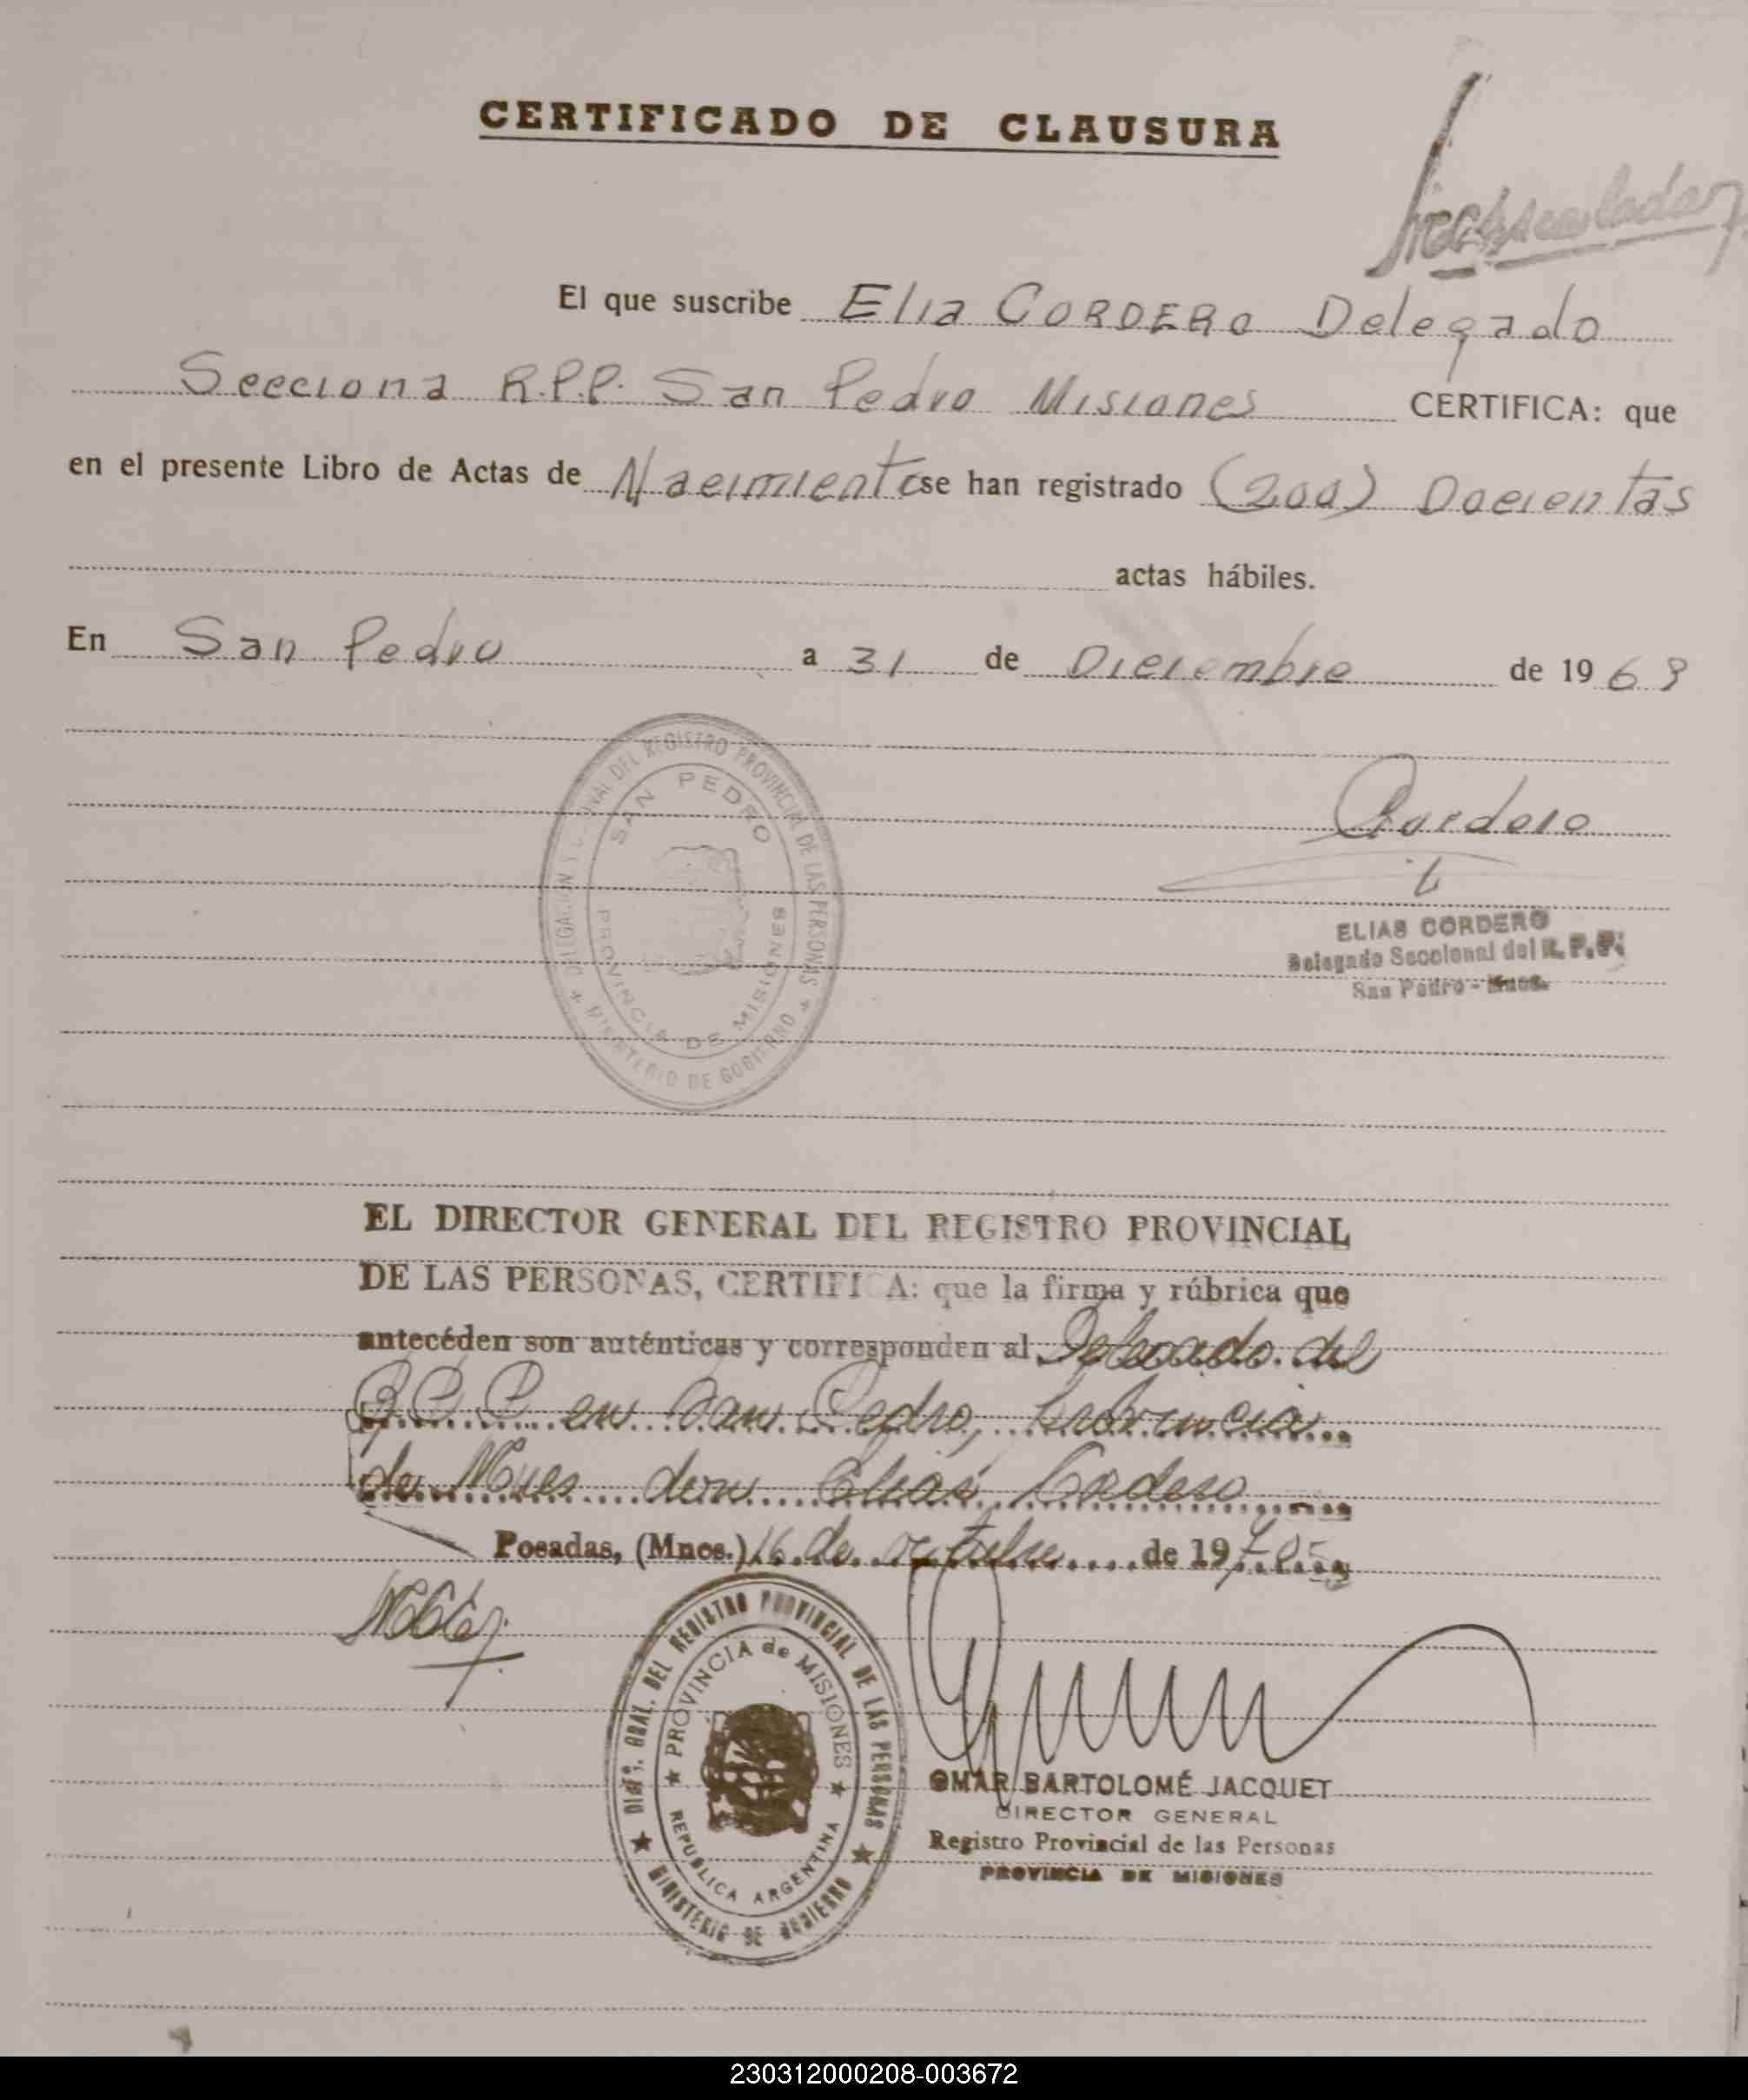 CERTIFICADO DE CLAUSURA
El que suscribe Elia CORDERO Delegado
Secciona R.P.P. San Pedro Misiones CERTIFICA: que
en el presente Libro de Actas de Nacimiento se han registrado (200) Docientas
actas hábiles.
En San Pedro a 31 de Diciembre de 1969
DELEGACIÓN SECCIONAL DEL REGISTRO PROVINCIAL DE LAS PERSONAS
SAN PEDRO
PROVINCIA DE MISIONES
MINISTERIO DE GOBIERNO
Cordero
ELIAS CORDERO
Delegado Seccional del R. P. P.
San Pedro - Mnes.
EL DIRECTOR GENERAL DEL REGISTRO PROVINCIAL
DE LAS PERSONAS, CERTIFICA: que la firma y rúbrica que
antecéden son auténticas y corresponden al Delegado del
R.P.P. en San Pedro, provincia
de Mnes don Elias Cordero
Posadas, (Mnes.) 16 de octubre de 1970
DIRec. GRAL. DEL REGISTRO PROVINCIAL DE LAS PERSONAS
PROVINCIA de MISIONES
REPUBLICA ARGENTINA
MINISTERIO DE GOBIERNO
OMAR BARTOLOMÉ JACQUET
DIRECTOR GENERAL
Registro Provincial de las Personas
PROVINCIA DE MISIONES
230312000208-003672